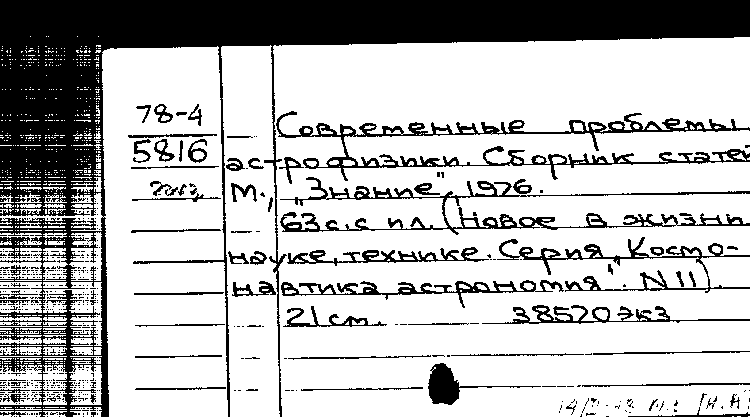 78-4
5816
Современные проблемы
астрофизики. Сборник статей
М., „Знание", 1976.
63 с. с ил. (Новое в жизни
науке, технике. Серия „Космо-
навтика, астрономия". N 11).
21 см. 38570 экз.